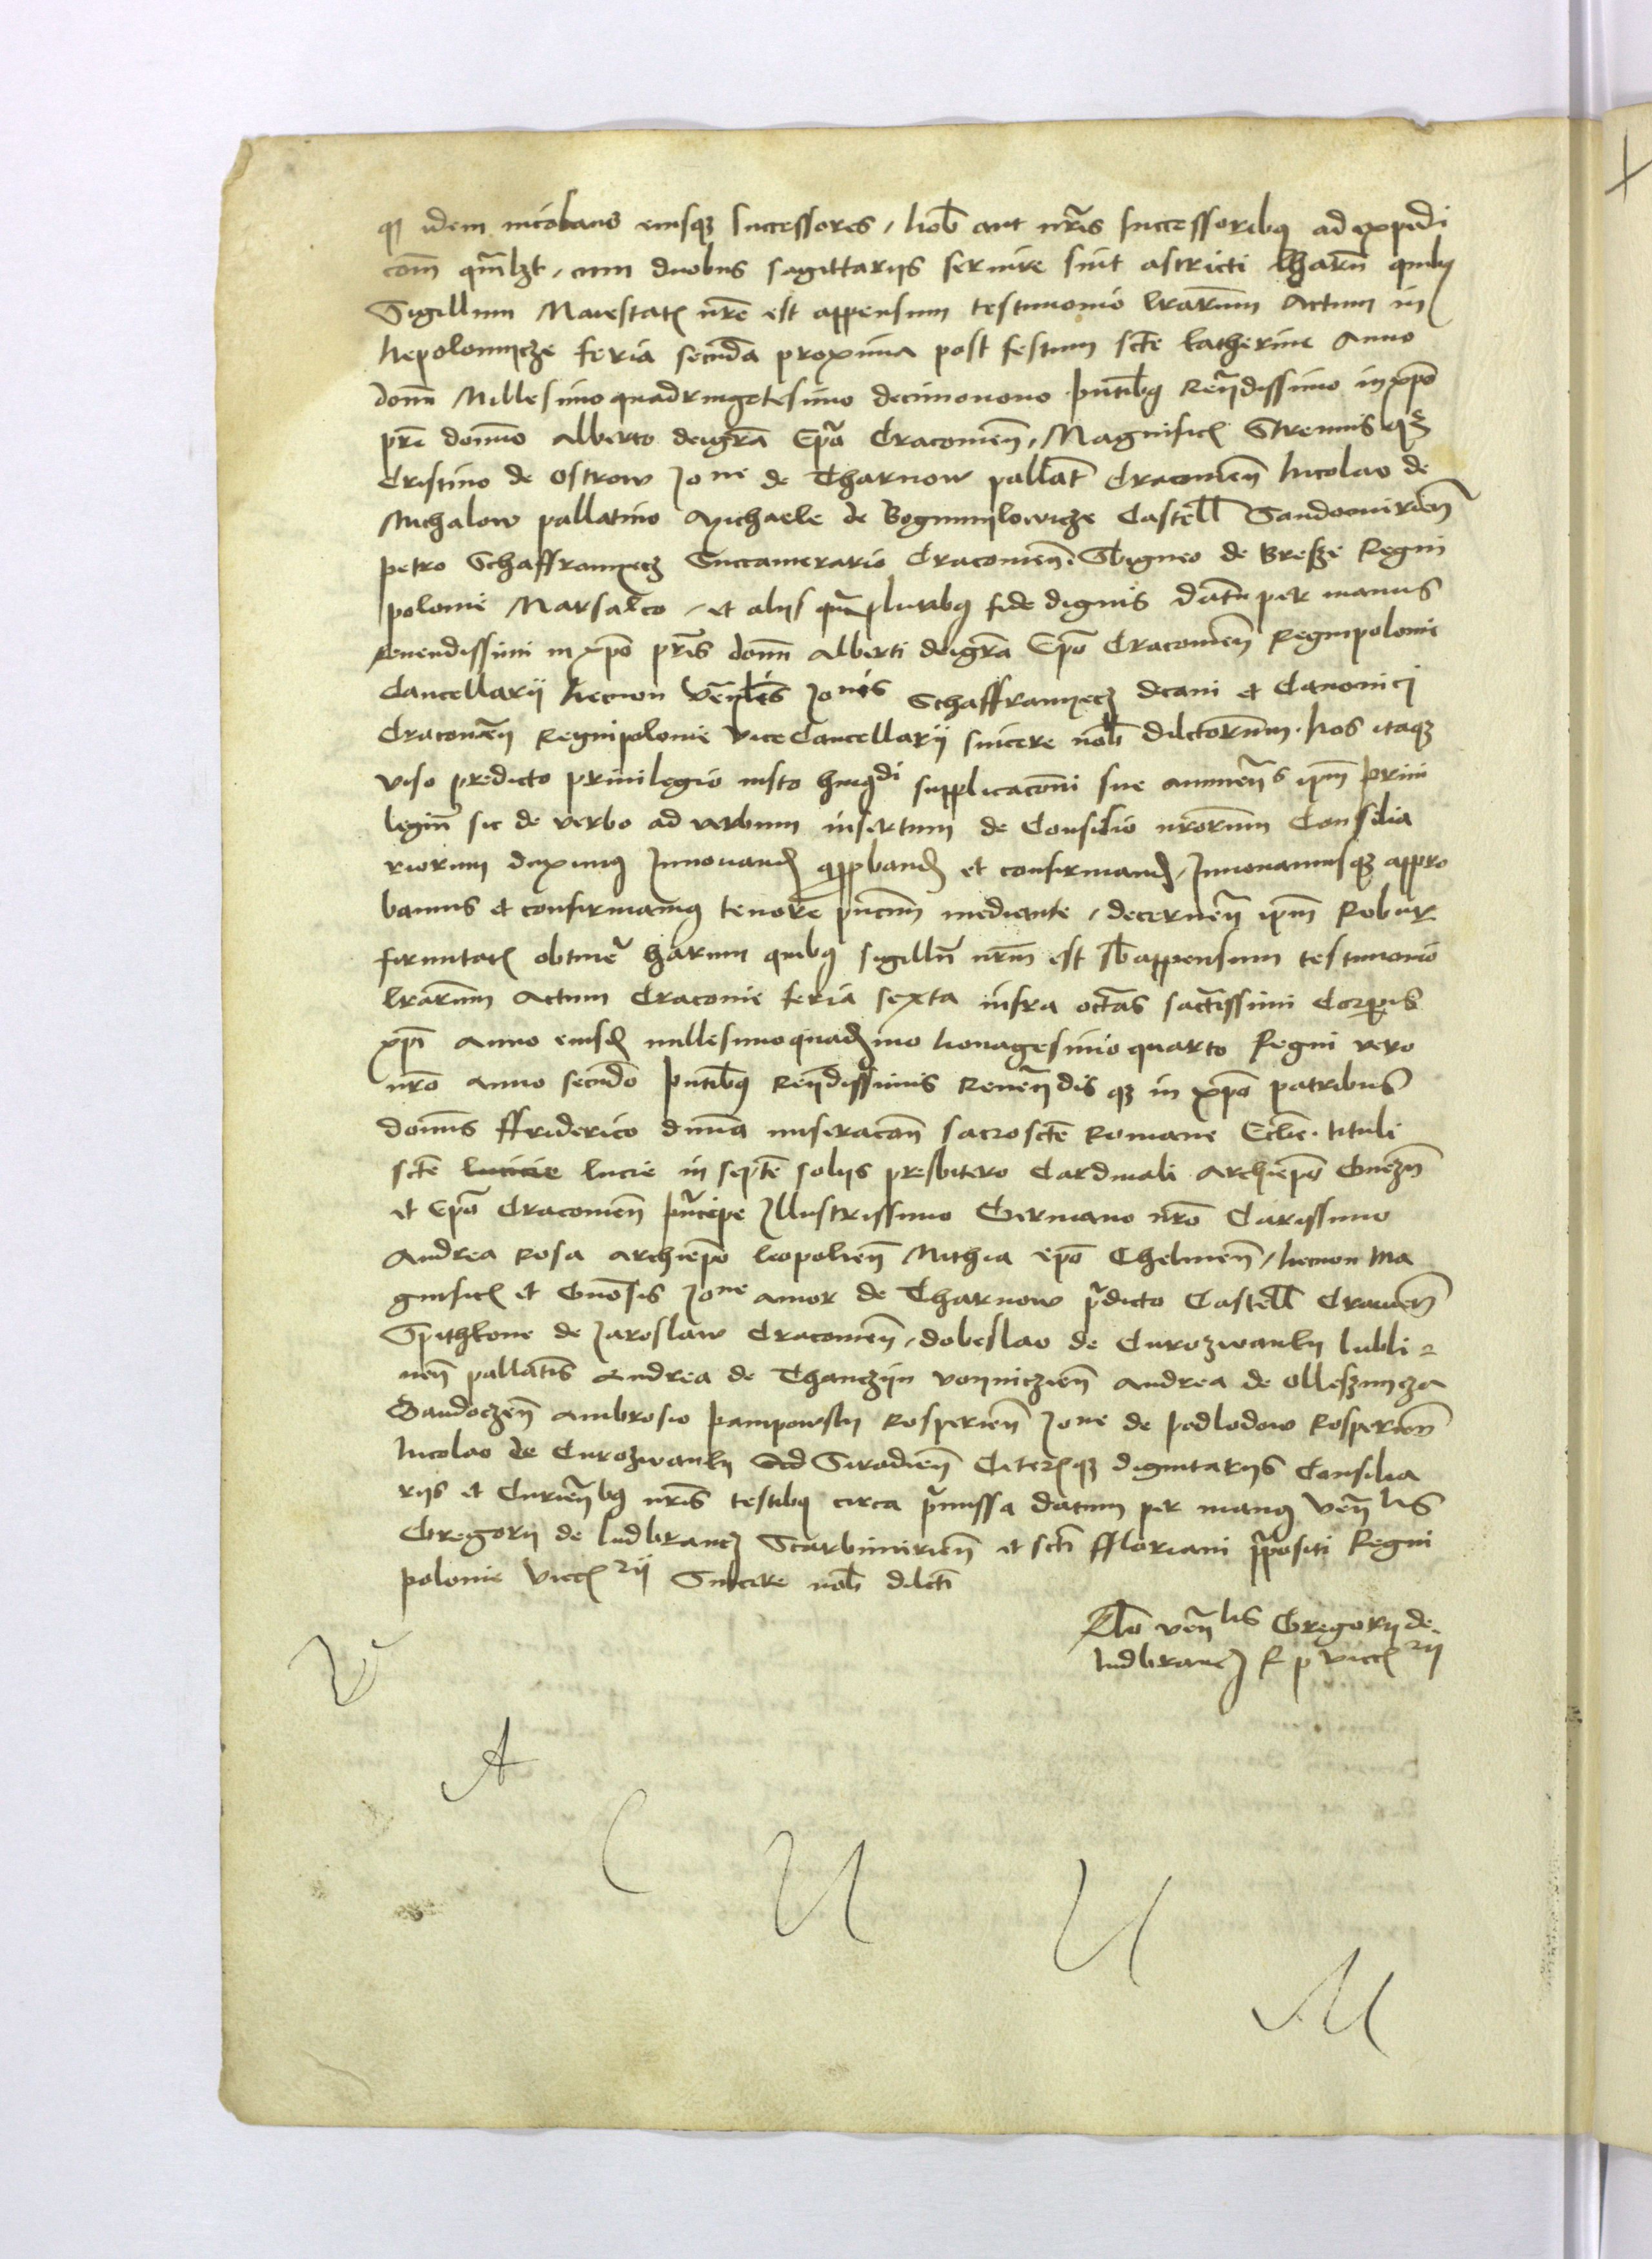 q idem nicolaus eiusq successores, nob aut nris successoribus ad expedi
com qmlzt, cum duobus sagittariis servire sint astricti harum quibus
Sigillum Maiestatis nre est appensum testimonio lrarum Actum in
Nepolomycze feria secunda proxima post festum scte katherine Anno
domi Millesimo quadringetesimo decimonono pntibus Revendissimo in xpo
pre domino Alberto dei gra Epo Cracovien, Magnificis Strenuisq
Cristino de Ostrow Jone de Tharnow pallat Cracovien Nicolao de
Michalow pallatino Michaele de Bogumilowicze Castell Sandomirien
petro Schaffranyecz Succamerario Cracovien. Sbigneo de Breszie Regni
polonie Marsalco, et aliis qm pluribus fide dignis datu per manus
Revendissimi in xpo pris domi Alberti dei gra Epi Cracovien Regni polonie
Cancellarii Necnon venlis Jonis Schaffranyecz decani et Canonici
Cracovien Regni polonie viceCancellarii sincere nob dilectorum. Nos itaq
viso predicto privilegio iusto huiusdi supplicacioni sue annuens ipm privi
legium sic de verbo ad verbum insertum de Consilio nrorum Consilia
riorum duximus Innovand approband et confirmand, Innovamusq appro
bamus et confirmamus tenore pncium mediante, decernen ipm Robur
firmitatis obtinere harum quibus sigillum nrm est subappensum testimonio
lrarum Actum Cracovie feria sexta infra octavas sactissimi Corporis
xpi Anno eiusd millesimoquadrimo Nonagesimo quarto Regni vero
nro Anno secundo pntibus Revendissimis Reverendis q in xpo patribus
dominis ffriderico divina miseracone sacroscte Romane Eclie tituli
scte lucicie lucie in septe soliis presbitero Cardinali Archiepo Gnezn
et Epo Cracovien principe Illustrissimo Germano nro Carissimo
Andrea Rosa Archiepo leopolien Mathia epo Chelmen, Necnon Ma
gnificis et Gnosis Jone Amor de Tharnow predicto Castell Cracovien
Spithkone de Jaroslaw Cracovien, dobeslao de Curozwanky lubli
nen pallatis Andrea de Thanczyn voyniczien Andrea de Ollesznicza
Sandoczen Ambrosio pampowsky Rosperien Jone de podlodow Rosperien
Nicolao de Curozwanky Siradien Ceterisq dignitariis Consilia
riis et Curien bus nris testibus circa premissa datum per manus venlis
Gregorii de ludbrancz Scarbimirien et scti ffloriani prepositi Regni
polonie vicecrii Sincere nob dilecti
Rlo venlis Gregorii de
ludbrancz R p vicecrii
V
A
C
U
U
M